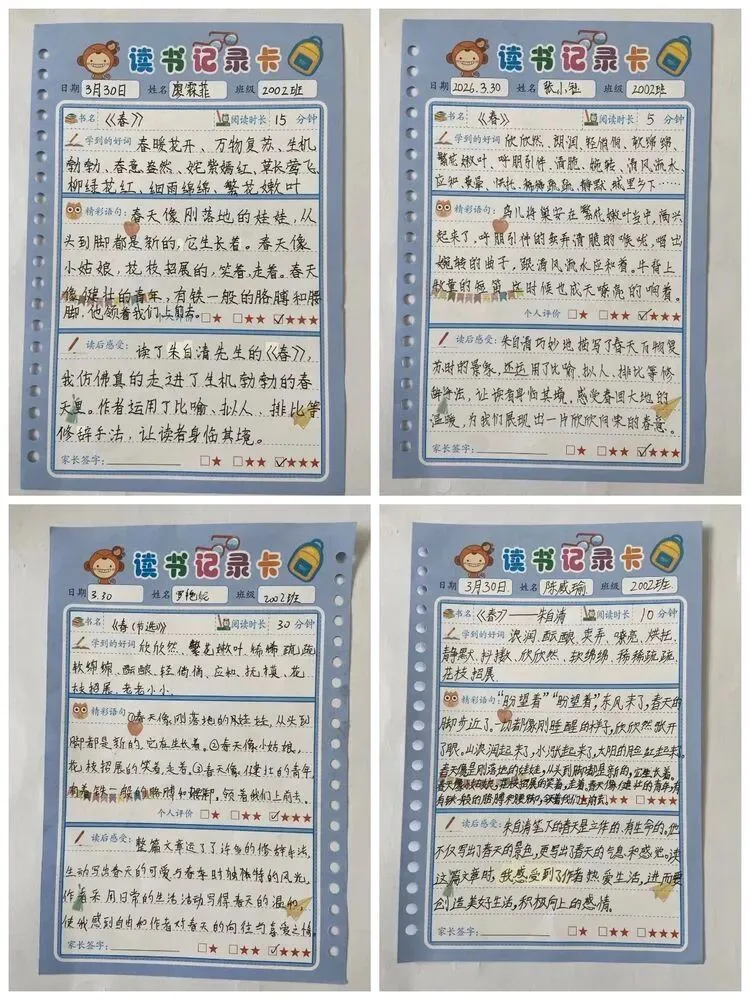 读书记录卡
日期 3月30日 姓名 廖霖菲 班级 2002班
书名 《春》 阅读时长 15 分钟
学到的好词 春暖花开、万物复苏、生机
勃勃、春意盎然、姹紫嫣红、草长莺飞、
柳绿花红、细雨绵绵、繁花嫩叶
精彩语句: 春天像刚落地的娃娃,从
头到脚都是新的,它生长着。春天像
小姑娘,花枝招展的,笑着,走着。春天
像健壮的青年,有铁一般的胳膊和腰
脚,他领着我们上前去。
个人评价 ★ ★★ ★★★
读后感受: 读了朱自清先生的《春》,
我仿佛真的走进了生机勃勃的春
天里。作者运用了比喻、拟人、排比等
修辞手法,让读者身临其境。
家长签字: ★ ★★ ★★★
读书记录卡
日期 2026.3.30 姓名 张小 班级 2002班
书名 《春》 阅读时长 5 分钟
学到的好词 欣欣然、朗润、轻悄悄、软绵绵、
繁花嫩叶、呼朋引伴、清脆、婉转、清风流水、
应和、烘托、稀稀疏疏、静默、城里乡下……
精彩语句: 鸟儿将巢安在繁花嫩叶当中,高兴
起来了,呼朋引伴的卖弄清脆的喉咙,唱出
婉转的曲子,跟清风流水应和着。牛背上
牧童的短笛,这时候也成天嘹亮的响着。
个人评价 ★ ★★ ★★★
读后感受: 朱自清巧妙地描写了春天万物复
苏时的景象,还运用了比喻、拟人、排比等修
辞手法,让读者身临其境。感受春回大地的
温暖,为我们展现出一片欣欣向荣的春意。
家长签字: ★ ★★ ★★★
读书记录卡
日期 3.30 姓名 罗艳 班级 2002班
书名 《春(节选)》 阅读时长 30 分钟
学到的好词 欣欣然、繁花嫩叶、稀稀疏疏
软绵绵、酝酿、轻悄悄、应和、抚摸、花
枝招展、老老小小.
精彩语句: ①春天像刚落地的娃娃,从头到
脚都是新的,它在生长着。②春天像小姑娘,
花枝招展的笑着,走着。③春天像健壮的青年,
有着铁一般的胳膊和腰脚。领着我们上前去。
个人评价 ★ ★★ ★★★
读后感受: 整篇文章运了了许多的修辞手法,
生动写出春天的可爱与春车时独独特的风光,
作者采用日常的生活活动写得春天的温和,
使我感到自由和作者对春天的向往与喜爱之情
家长签字: ★ ★★ ★★★
读书记录卡
日期 3月30日. 姓名 陈威瑜 班级 2002班.
书名 《春》——朱自清 阅读时长 10 分钟
学到的好词 浪润、酝酿、卖弄、嘹亮、烘托、
静默、抖擞、欣欣然、软绵绵、稀稀疏疏、
花枝招展.
精彩语句: “盼望着”“盼望着”,东风来了,春天的
脚步近了。一切都像刚睡醒的样子,欣欣然张开
了眼,山浪润起来了,水涨起来了,太阳的脸红起来了。
春天像是刚落地的娃娃,从头到脚都是新的,它生长着。
春天像小姑娘,花枝招展的,笑着,走着。春天像健壮的青年,有
有铁一般的胳膊和腰脚,领着我们上前去。
读后感受: 朱自清笔下的春天是立体的、有生命的。他
不仅写出了春天的景色,更写出了春天的气息和感觉。读
这篇文章时,我感受到了作者热爱生活,进而要
创造美好生活,积极向上的感情。
家长签字: ★ ★★ ★★★